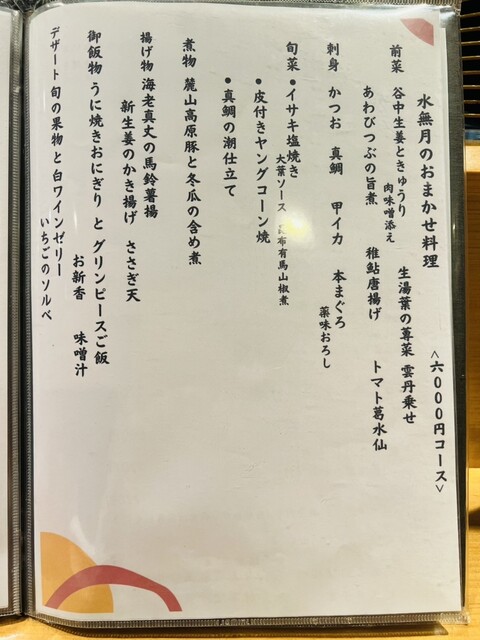 水無月のおまかせ料理
<六000円コース>
前菜 谷中生姜ときゅうり 生湯葉の蓴菜 雲丹乗せ
肉味噌添え
あわびつぶの旨煮 稚鮎唐揚げ トマト葛水仙
刺身 かつお 真鯛 甲イカ 本まぐろ
薬味おろし
旬菜 ●イサキ塩焼き
大葉ソース 昆布有馬山椒煮
●皮付きヤングコーン焼
●真鯛の潮仕立て
煮物 麓山高原豚と冬瓜の含め煮
揚げ物 海老真丈の馬鈴薯揚
新生姜のかき揚げ ささぎ天
御飯物 うに焼きおにぎり と グリンピースご飯
お新香 味噌汁
デザート 旬の果物 と 白ワインゼリー
いちごのソルベ